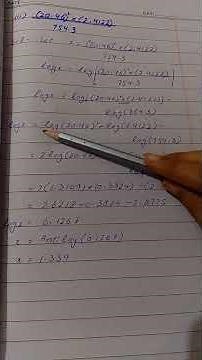 (20.46)² × (2.4122)
754.3
Sol- Let x = (20.46)² × (2.4122)
754.3
log x = log [(20.46)² × (2.4122)
754.3]
log x = log (20.46)² × (2.4122) -
log (754.3)
log x = log (20.46)² + log (2.4122) -
log (754.3)
= 2 log (20.46)
= 2(1.3109) + 0.3824 - (2.
= 2.6218 + 0.3824 - 2.8775
log x = 0.1267
x = Anti log (0.1267)
x = 1.339